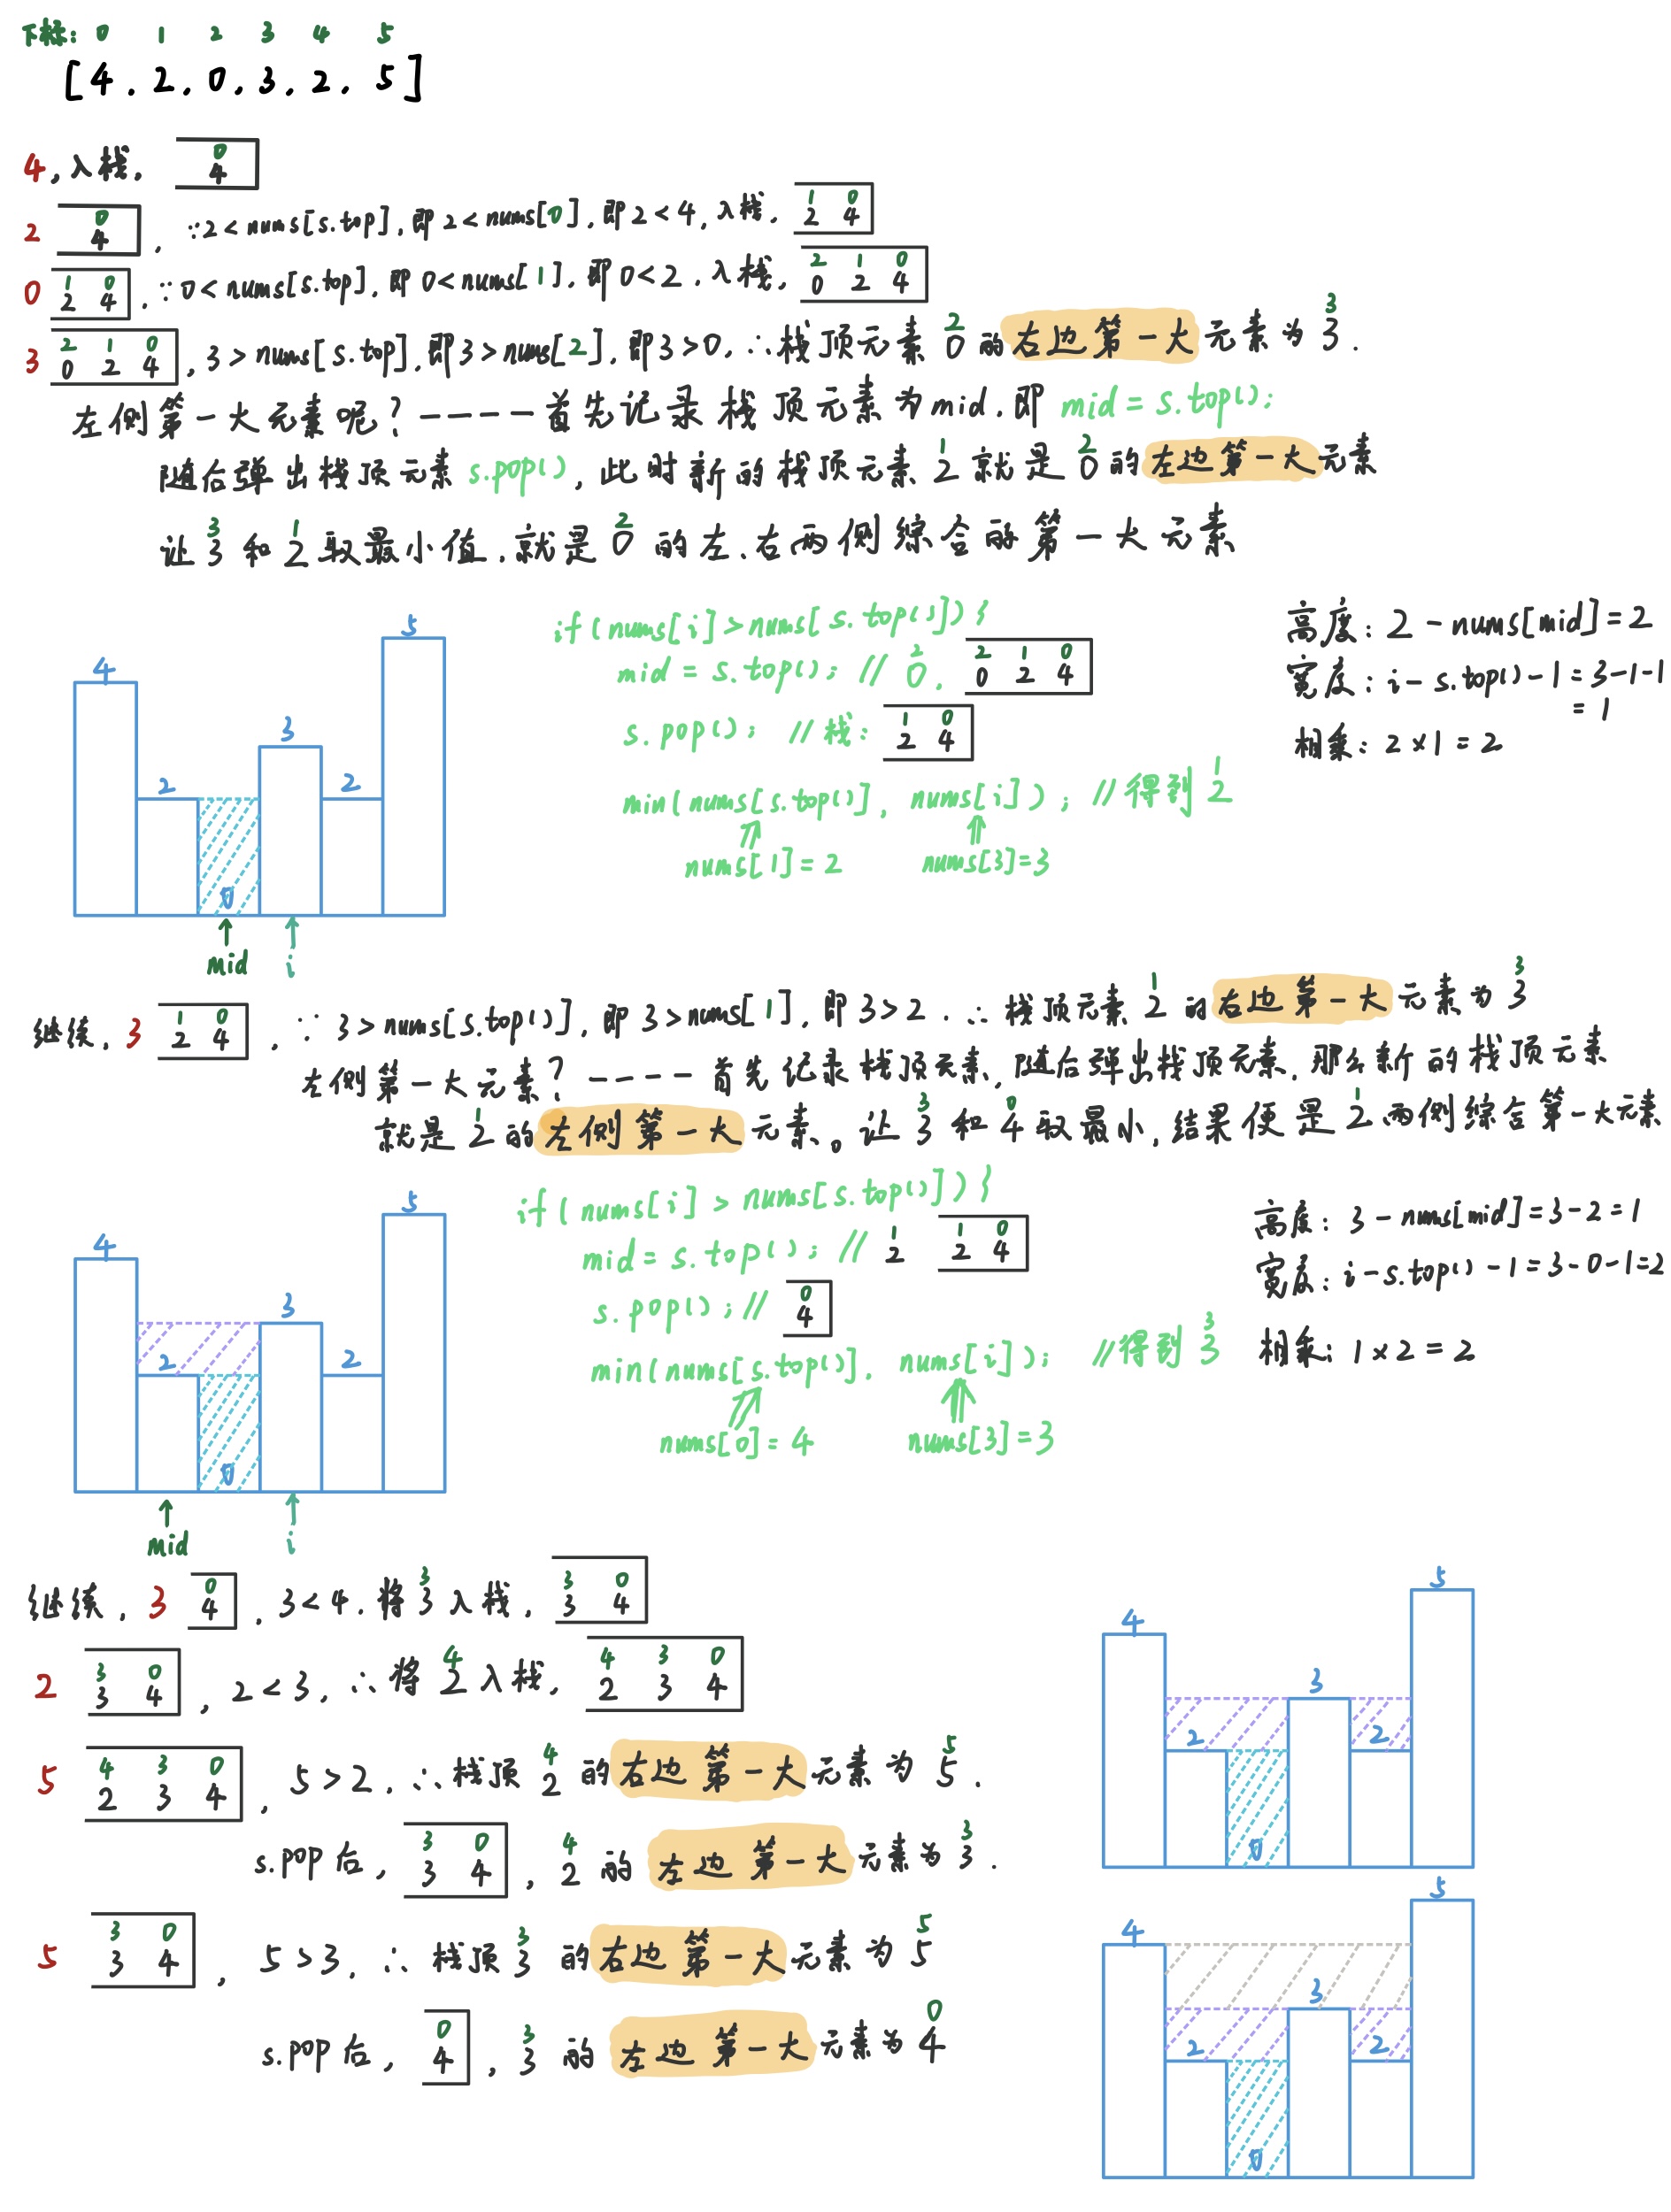 下标: 0 1 2 3 4 5
[4, 2, 0, 3, 2, 5]
4, 入栈, 0 4
2 0 4, ∵2<nums[s.top], 即2<nums[0], 即2<4, 入栈, 1 0 2 4
0 1 0 2 4, ∵0<nums[s.top], 即0<nums[1], 即0<2, 入栈, 2 1 0 0 2 4
3 2 1 0 0 2 4, 3>nums[s.top], 即3>nums[2], 即3>0, ∴栈顶元素 2 0 的右边第一大元素为 3 3.
左侧第一大元素呢? ---- 首先记录栈顶元素为mid, 即 mid = s.top();
随后弹出栈顶元素 s.pop(), 此时新的栈顶元素 1 2 就是 2 0 的左边第一大元素
让 3 3 和 1 2 取最小值, 就是 2 0 的左、右两侧综合的第一大元素
4 2 0 3 2 5
mid i
if (nums[i]>nums[s.top()]) {
mid = s.top(); // 2 0, 2 1 0 0 2 4
s.pop(); //栈: 1 0 2 4
min(nums[s.top()], nums[i]); //得到 1 2
nums[1]=2 nums[3]=3
高度: 2-nums[mid]=2
宽度: i-s.top()-1=3-1-1
=1
相乘: 2×1=2
继续, 3 1 0 2 4, ∵3>nums[s.top()], 即3>nums[1], 即3>2, ∴栈顶元素 1 2 的右边第一大元素为 3 3
左侧第一大元素? ---- 首先记录栈顶元素, 随后弹出栈顶元素, 那么新的栈顶元素
就是 1 2 的左侧第一大元素。让 3 3 和 0 4 取最小, 结果便是 1 2 两侧综合第一大元素
4 2 0 3 2 5
mid i
if (nums[i] > nums[s.top()]) {
mid = s.top(); // 1 2 1 0 2 4
s.pop(); // 0 4
min(nums[s.top()], nums[i]); //得到 3 3
nums[0]=4 nums[3]=3
高度: 3-nums[mid]=3-2=1
宽度: i-s.top()-1=3-0-1=2
相乘: 1×2=2
继续, 3 0 4, 3<4, 将 3 3 入栈, 3 0 3 4
2 3 0 3 4, 2<3, ∴将 4 2 入栈, 4 3 0 2 3 4
5 4 3 0 2 3 4, 5>2, ∴栈顶 4 2 的右边第一大元素为 5 5.
s.pop后, 3 0 3 4, 4 2 的左边第一大元素为 3 3.
5 3 0 3 4, 5>3, ∴栈顶 3 3 的右边第一大元素为 5 5
s.pop后, 0 4, 3 3 的左边第一大元素为 0 4
4 2 0 3 2 5
4 2 0 3 2 5